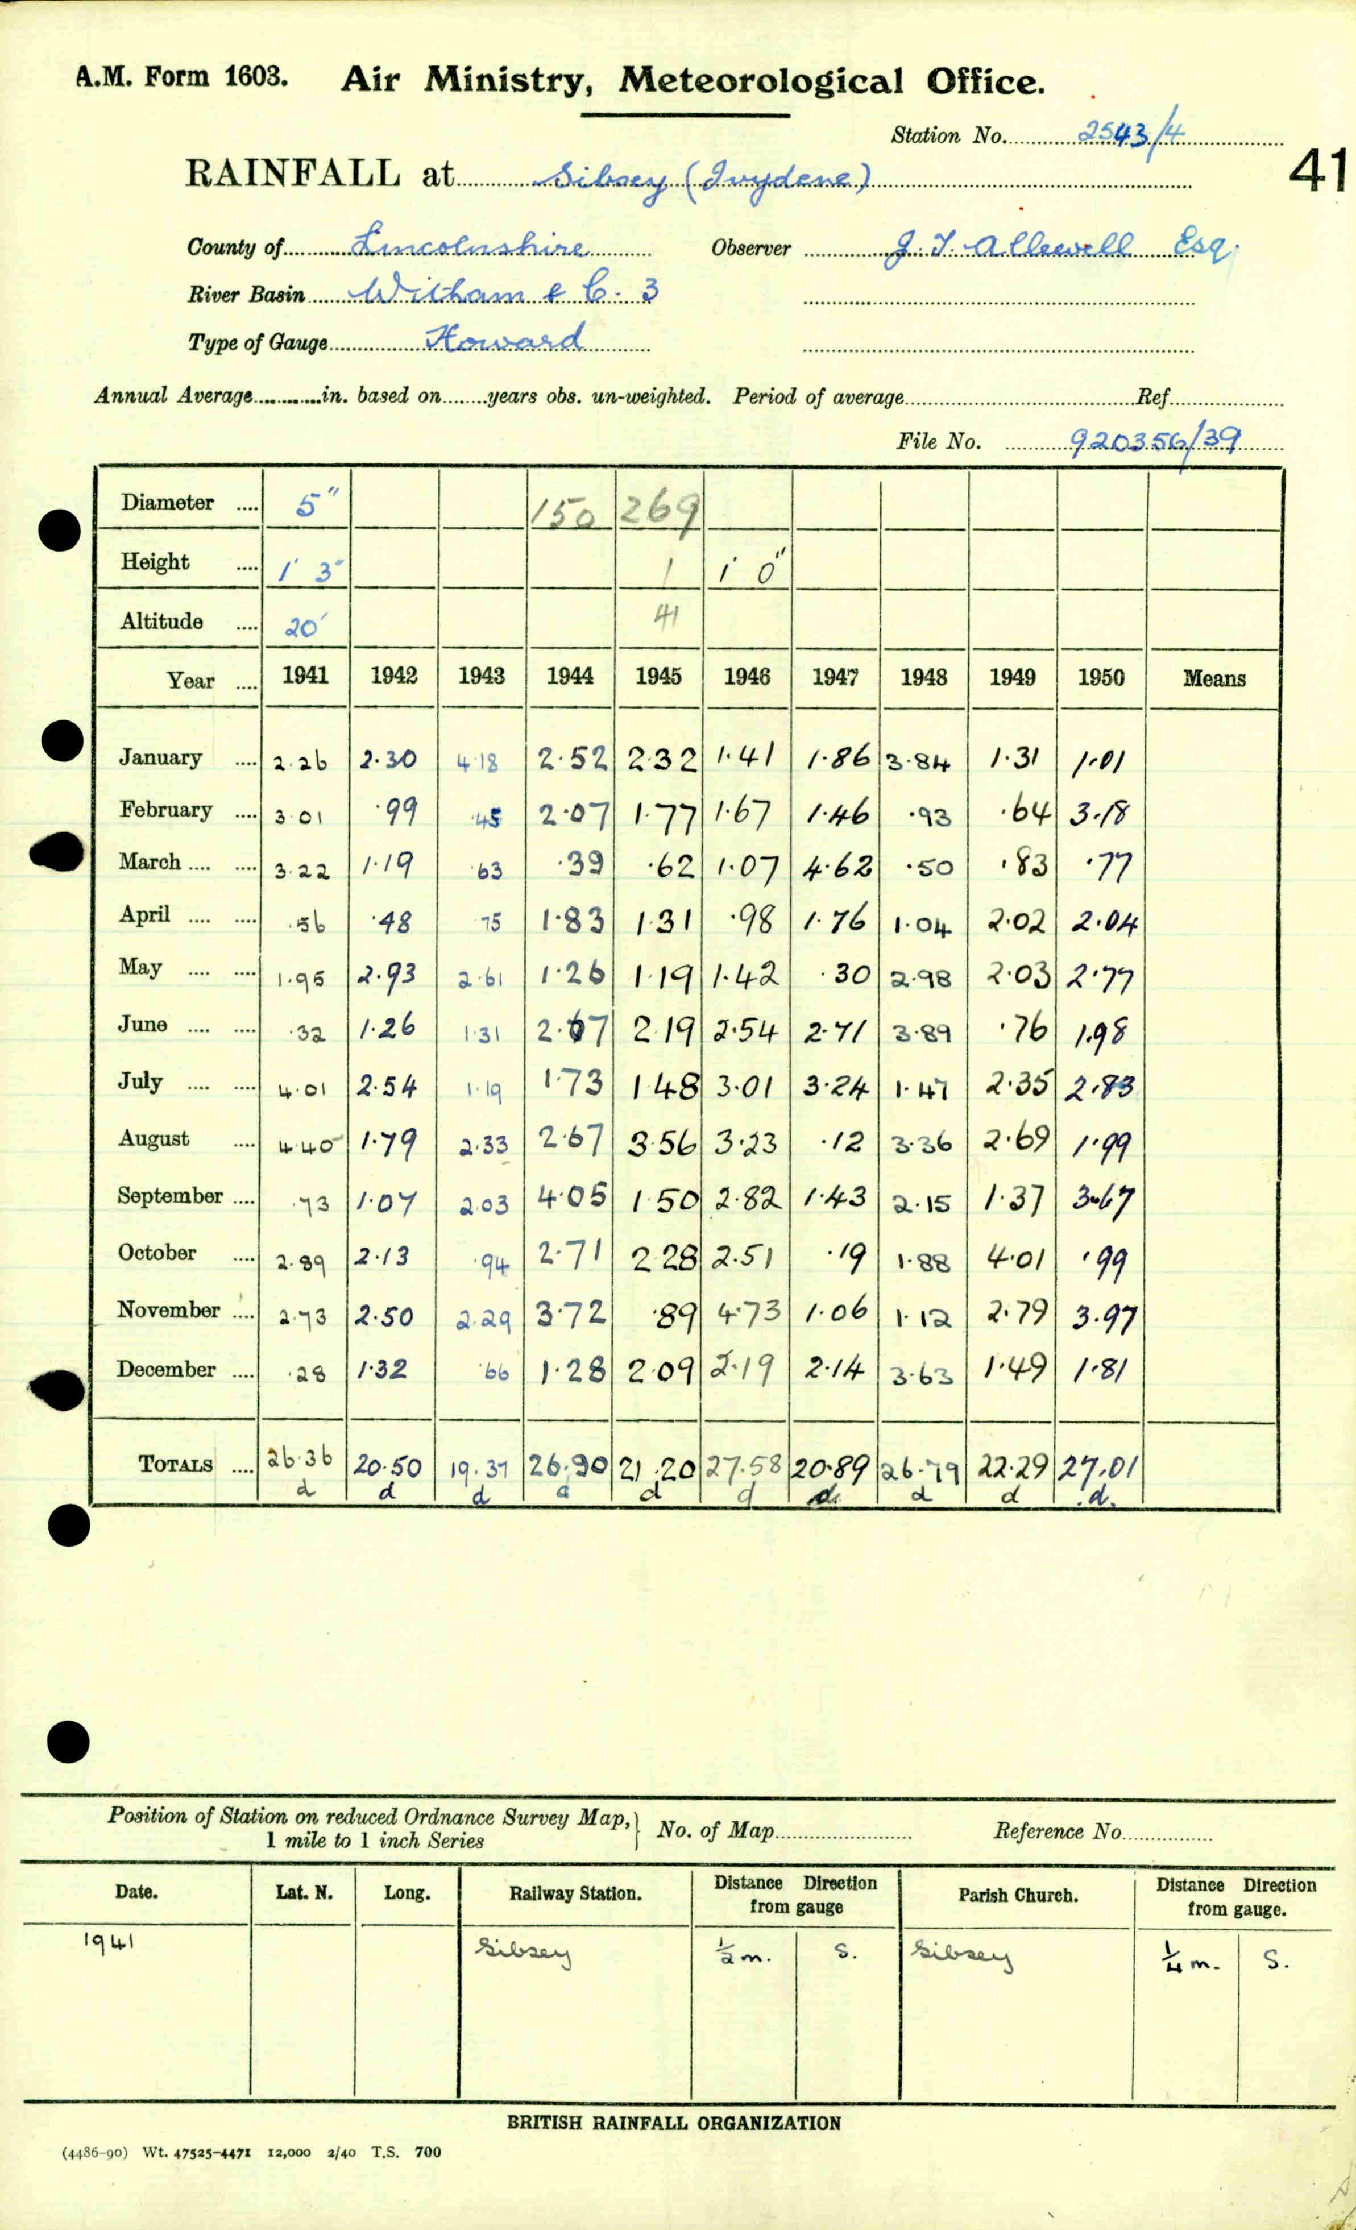 A.M. Form 1603. Air Ministry, Meteorological Office.
Station No. 2543/4
41
RAINFALL at Sibsey (Ivydene)
County of Lincolnshire Observer J. T. Allewell Esq.
River Basin Witham & C. 3
Type of Gauge Howard
Annual Average in. based on years obs. un-weighted. Period of average Ref
File No. 920356/39
Diameter .... 5" 150 269
Height .... 1' 3" 1 1' 0"
Altitude .... 20' 41
Year .... 1941 1942 1943 1944 1945 1946 1947 1948 1949 1950 Means
January .... 2.26 2.30 4.18 2.52 2.32 1.41 1.86 3.84 1.31 1.01
February .... 3.01 .99 .45 2.07 1.77 1.67 1.46 .93 .64 3.18
March .... .... 3.22 1.19 .63 .39 .62 1.07 4.62 .50 .83 .77
April .... .... .56 .48 .75 1.83 1.31 .98 1.76 1.04 2.02 2.04
May .... .... 1.95 2.93 2.61 1.26 1.19 1.42 .30 2.98 2.03 2.77
June .... .... .32 1.26 1.31 2.67 2.19 2.54 2.71 3.89 .76 1.98
July .... .... 4.01 2.54 1.19 1.73 1.48 3.01 3.24 1.47 2.35 2.83
August .... 4.40 1.79 2.33 2.67 3.56 3.23 .12 3.36 2.69 1.99
September .... .73 1.07 2.03 4.05 1.50 2.82 1.43 2.15 1.37 3.67
October .... 2.89 2.13 .94 2.71 2.28 2.51 .19 1.88 4.01 .99
November .... 2.73 2.50 2.29 3.72 .89 4.73 1.06 1.12 2.79 3.97
December .... .28 1.32 .66 1.28 2.09 2.19 2.14 3.63 1.49 1.81
TOTALS .... 26.36 20.50 19.37 26.90 21.20 27.58 20.89 26.79 22.29 27.01
d d d a d d d d d d.
Position of Station on reduced Ordnance Survey Map, } No. of Map Reference No.
1 mile to 1 inch Series
Date. Lat. N. Long. Railway Station. Distance Direction from gauge Parish Church. Distance Direction from gauge.
1941 Sibsey ½ m. S. Sibsey ¼ m. S.
BRITISH RAINFALL ORGANIZATION
(4486-90) Wt. 47525-4471 12,000 2/40 T.S. 700